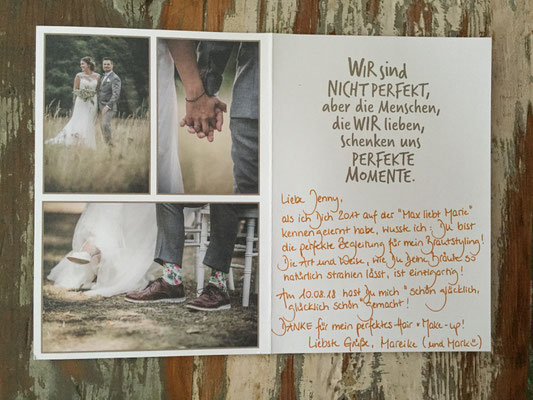 WIR sind
NICHT PERFEKT,
aber die Menschen,
die WIR lieben,
schenken uns
PERFEKTE
MOMENTE.
Liebe Jenny,
als ich Dich 2017 auf der "Max liebt Marie"
kennengelernt habe, wusste ich: Du bist
die perfekte Begleitung für mein Brautstyling!
Die Art und Weise, wie Du Deine Bräute so
natürlich strahlen lässt, ist einzigartig!
Am 10.08.18 hast Du mich "schön glücklich,
glücklich schön" gemacht!
DANKE für mein perfektes Hair + Make-up!
Liebste Grüße, Mareike (und Mark☺)